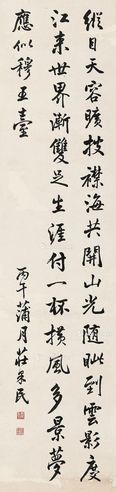 縱目天容曠披襟海共開山光隨眺到雲影度
江來世界漸雙足生涯付一杯橫風多景夢
應似穆王臺
丙午蒲月莊承民